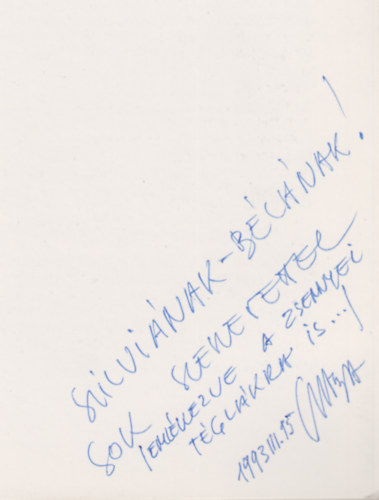 SZILVIÁNAK - BÉLÁNAK!
SOK SZERETETTEL
EMLÉKEZVE A ZSENNYEI
TÉGLÁKRA IS...!
1993 III. 15